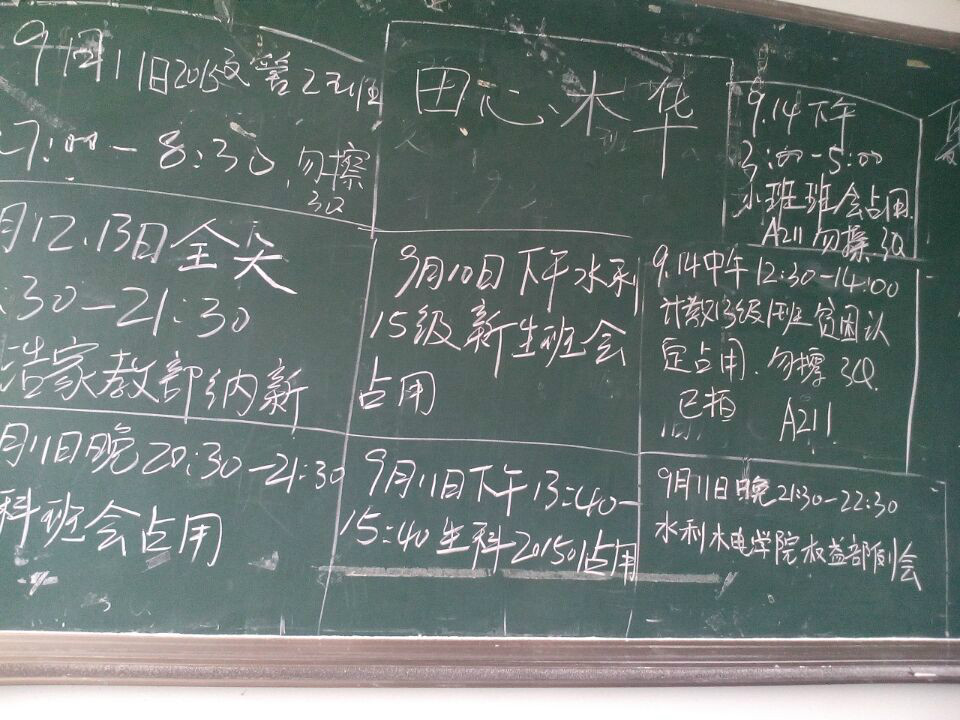 9月11日2015文管2班
7:00-8:30 勿擦
3Q
田心木华
9.14下午
3:00-5:00
小班班会占用
A211勿擦 3Q
月12.13日全天
:30-21:30
浩家教部纳新
9月10日下午水利
15级新生班会
占用
9.14中午12:30-14:00
计教13级1班贫困认
定占用.勿擦 3Q.
已拍 A211
月11日晚20:30-21:30
科班会占用
9月11日下午13:40-
15:40生科201501占用
9月11日晚21:30-22:30
水利水电学院权益部例会